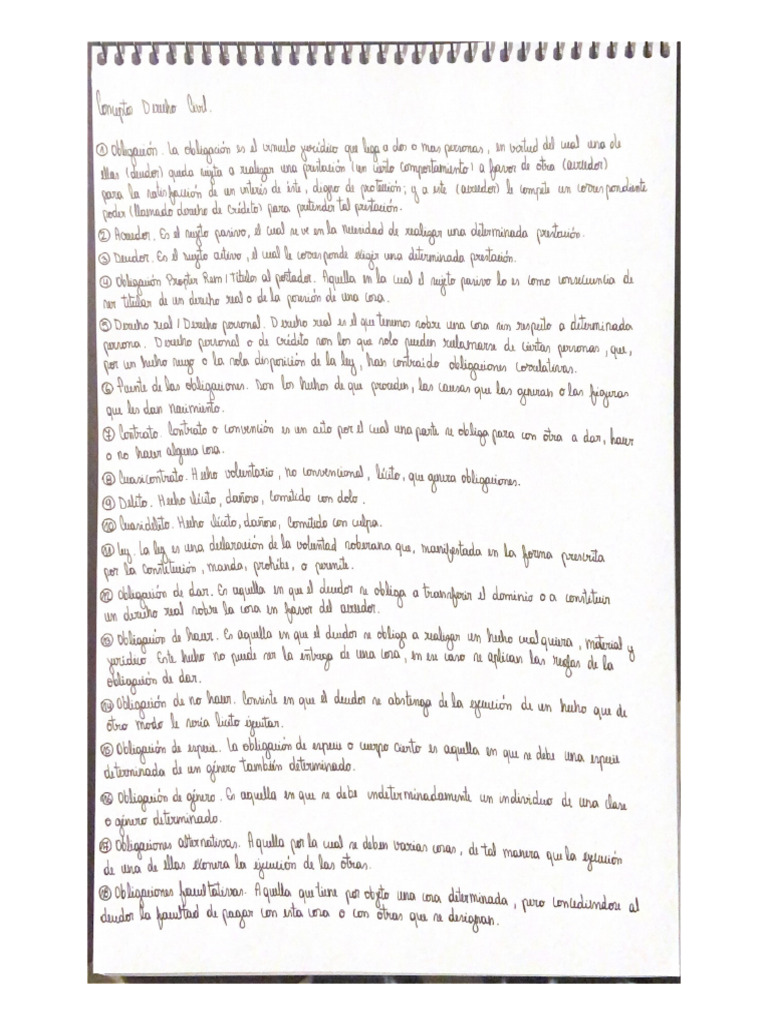 Conceptos Derecho Civil.
① Obligación. La obligación es el vínculo jurídico que liga a dos o mas personas, en virtud del cual una de
ellas (deudor) queda sujeta a realizar una prestación (un cierto comportamiento) a favor de otra (acreedor)
para la satisfacción de un interés de éste, digno de protección; y a este (acreedor) le compete un correspondiente
poder (llamado derecho de crédito) para pretender tal prestación.
② Acreedor. Es el sujeto pasivo, el cual se ve en la necesidad de realizar una determinada prestación.
③ Deudor. Es el sujeto activo, el cual le corresponde exigir una determinada prestación.
④ Obligación Propter Rem / Títulos al portador. Aquella en la cual el sujeto pasivo lo es como consecuencia de
ser titular de un derecho real o de la posesión de una cosa.
⑤ Derecho real / Derecho personal. Derecho real es el que tenemos sobre una cosa sin respeto a determinada
persona. Derecho personal o de crédito son los que solo pueden reclamarse de ciertas personas, que,
por un hecho suyo o la sola disposición de la ley, han contraido obligaciones correlativas.
⑥ Fuente de las obligaciones. Son los hechos de que proceden, las causas que las generan o las figuras
que les dan nacimiento.
⑦ Contrato. Contrato o convención es un acto por el cual una parte se obliga para con otra a dar, hacer
o no hacer alguna cosa.
⑧ Cuasicontrato. Hecho voluntario, no convencional, lícito, que genera obligaciones.
⑨ Delito. Hecho ilícito, dañoso, cometido con dolo.
⑩ Cuasidelito. Hecho ilícito, dañoso, cometido con culpa.
⑪ Ley. La ley es una declaración de la voluntad soberana que, manifestada en la forma prescrita
por la constitución, manda, prohíbe, o permite.
⑫ Obligación de dar. Es aquella en que el deudor se obliga a transferir el dominio o a constituir
un derecho real sobre la cosa en favor del acreedor.
⑬ Obligación de hacer. Es aquella en que el deudor se obliga a realizar un hecho cualquiera, material y
jurídico. Este hecho no puede ser la entrega de una cosa, en ese caso se aplican las reglas de la
obligación de dar.
⑭ Obligación de no hacer. Consiste en que el deudor se abstenga de la ejecución de un hecho que de
otro modo le sería lícito ejecutar.
⑮ Obligación de especie. La obligación de especie o cuerpo cierto es aquella en que se debe una especie
determinada de un género también determinado.
⑯ Obligación de género. Es aquella en que se debe indeterminadamente un individuo de una clase
o género determinado.
⑰ Obligaciones alternativas. Aquella por la cual se deben varias cosas, de tal manera que la ejecución
de una de ellas exonera la ejecución de las otras.
⑱ Obligaciones facultativas. Aquella que tiene por objeto una cosa determinada, pero concediendose al
deudor la facultad de pagar con esta cosa o con otras que se designan.